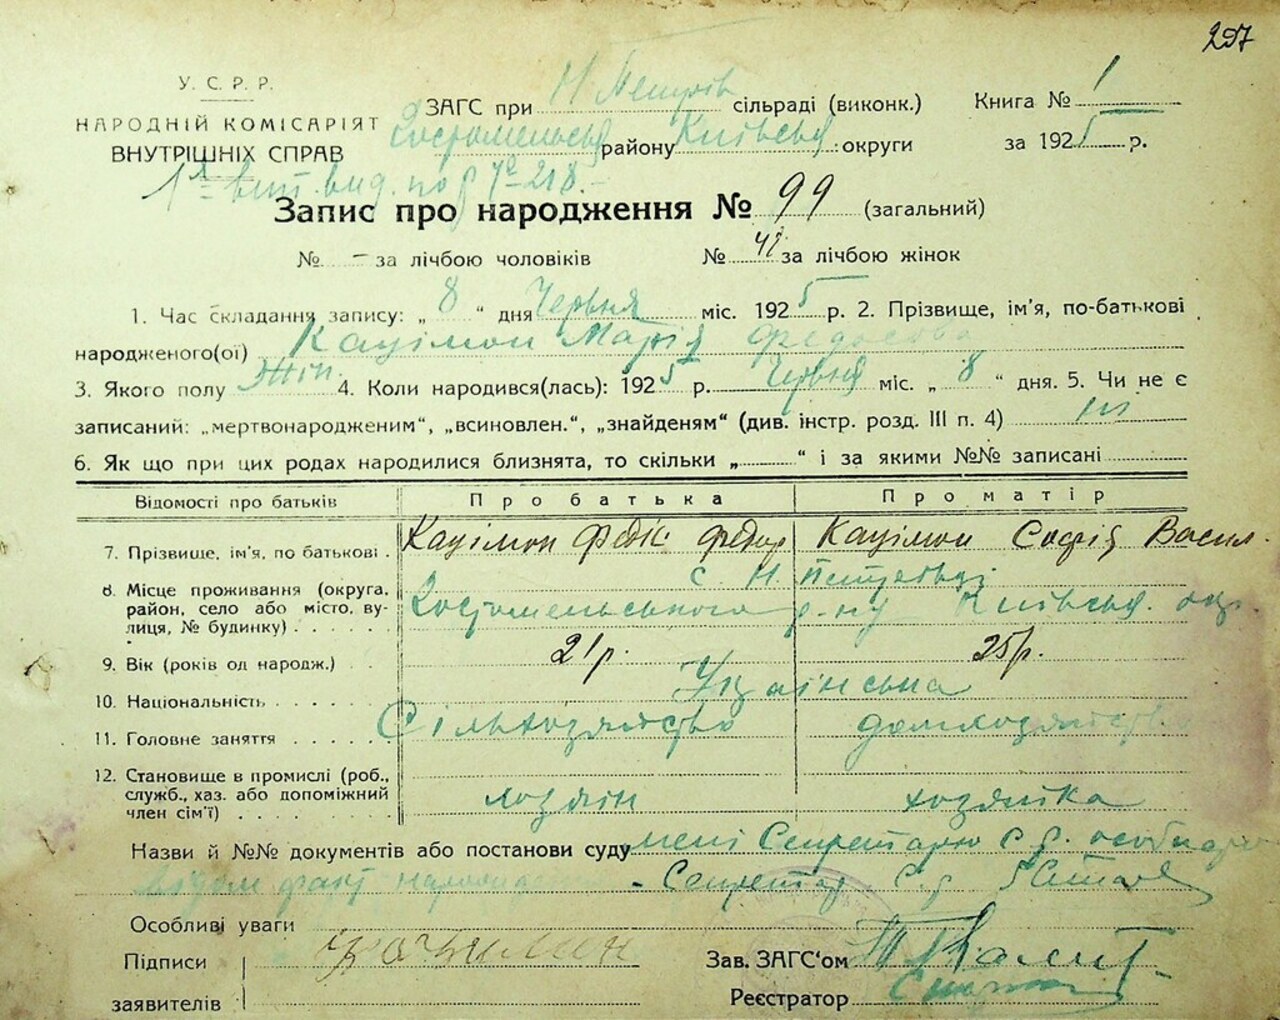 297
У. С. Р. Р.
НАРОДНІЙ КОМІСАРІЯТ
ВНУТРІШНІХ СПРАВ
ЗАГС при Н Петрів сільраді (виконк.)
району Київськ округи
Книга № 1
за 1925 р.
Запис про народження № 99 (загальний)
№ - за лічбою чоловіків № 42 за лічбою жінок
1. Час складання запису: „ 8 “ дня Червня міс. 1925 р. 2. Прізвище, ім'я, по-батькові
народженого(ої) Кацімон Марія Федосова
3. Якого полу Жін. 4. Коли народився(лась): 1925 р. Червня міс. „ 8 “ дня. 5. Чи не є
записаний: „мертвонародженим“, „всиновлен.“, „знайденям“ (див. інстр. розд. III п. 4)
6. Як що при цих родах народилися близнята, то скільки „ “ і за якими №№ записані
Відомості про батьків Про батька Про матір
7. Прізвище, ім'я, по батькові . Кацімон Федір Кацімон Софія Васил.
8. Місце проживання (округа, с. Н. Петрівці
район, село або місто, ву- Гостомельського р-ну Київськ. окр.
лиця, № будинку) . . . . .
9. Вік (років од народж.) . . 21 р. 25 р.
10. Національність . . . . . . Українська
11. Головне заняття . . . . . Сільхозяйство домхозяйство
12. Становище в промислі (роб.,
служб., хаз. або допоміжний
член сім'ї) . . . . . . . . хозяін хозяйка
Назви й №№ документів або постанови суду мені Секретарю с. р. особисто
відом факт народження - Секретар с. р.
Особливі уваги
Підписи
заявителів
Кацимон
Зав. ЗАГС‘ом
Реєстратор